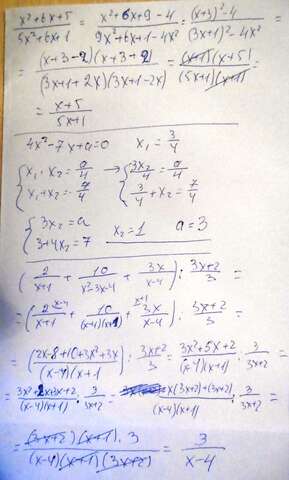 (x²+6x+5)/(5x²+6x+1) = (x²+6x+9-4)/(9x²+6x+1-4x²) = ((x+3)²-4)/((3x+1)²-4x²) =
= ((x+3-2)(x+3+2))/((3x+1+2x)(3x+1-2x)) = ((x+1)(x+5))/((5x+1)(x+1)) =
= (x+5)/(5x+1)
4x²-7x+a=0 x₁=3/4
{x₁·x₂=a/4 → {3x₂/4=a/4
{x₁+x₂=7/4 {3/4+x₂=7/4
{3x₂=a
{3+4x₂=7 x₂=1 a=3
(2/(x+1) + 10/(x²-3x-4) + 3x/(x-4)) : (3x+2)/3 =
=(2/(x+1) + 10/((x-4)(x+1)) + 3x/(x-4)) : (3x+2)/3 =
=((2x-8+10+3x²+3x)/((x-4)(x+1))) : (3x+2)/3 = (3x²+5x+2)/((x-4)(x+1)) · 3/(3x+2) =
= (3x²+2x+3x+2)/((x-4)(x+1)) · 3/(3x+2) = (x(3x+2)+(3x+2))/((x-4)(x+1)) · 3/(3x+2) =
= ((3x+2)(x+1)·3)/((x-4)(x+1)(3x+2)) = 3/(x-4)